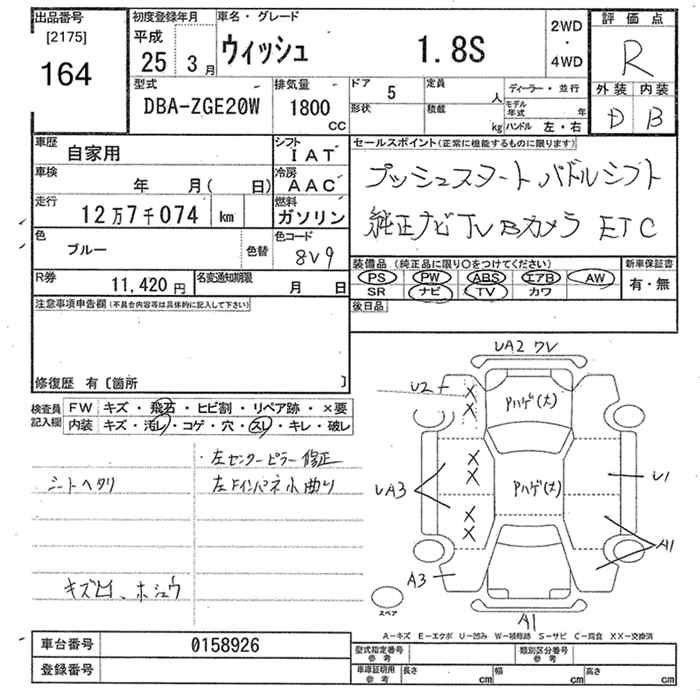 出品番号 初度登録年月 車名・グレード 評価点
[2175] 平成 ウィッシュ 1.8S 2WD・4WD R
164 25 3月
型式 排気量 ドア 5 定員 人 ディーラー・並行 外装 内装
DBA-ZGE20W 1800CC 形状 積載 kg モデル年式 年 ハンドル 左・右 D B
車歴 自家用 シフト IAT セールスポイント(正常に機能するものに限ります)
車検 年 月( 日) 冷房 AAC プッシュスタート パドルシフト
走行 12万7千074 km 燃料 ガソリン 純正ナビ TV Bカメラ ETC
色 ブルー 色替 色コード 8V9
装備品(純正品に限り〇をつけてください) 新車保証書
PS PW ABS エアB AW 有・無
SR ナビ TV カワ
R券 11,420円 名変通知期限 月 日
後日品
注意事項申告欄(不具合内容等は具体的に記入して下さい)
修復歴 有〔箇所 〕
検査員記入欄 FW キズ・飛石・ヒビ割・リペア跡・×要
内装 キズ・汚レ・コゲ・穴・スレ・キレ・破レ
左センターピラー修正
シートヘタリ 左Fインパネ小曲り
キズ凹、ホシュウ
UA2 ワレ
U2
Pハゲ(大)
Pハゲ(大)
UA3
U1
A1
A3
スペア
A1
A-キズ E-エクボ U-凹み W-補修跡 S-サビ C-腐食 XX-交換済
車台番号 0158926 型式指定番号 参考 類別区分番号 参考
登録番号 車庫証明用 参考 長さ cm 幅 cm 高さ cm